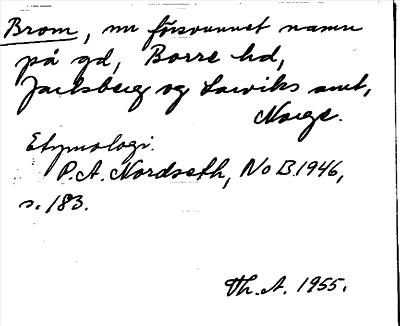 Brom, nu försvunnet namn
på gd, Borre hd,
Jarlsberg og Larviks amt,
Norge.
Etymologi:
P.A. Nordseth, NoB 1946,
s. 183.
Th. A. 1955.